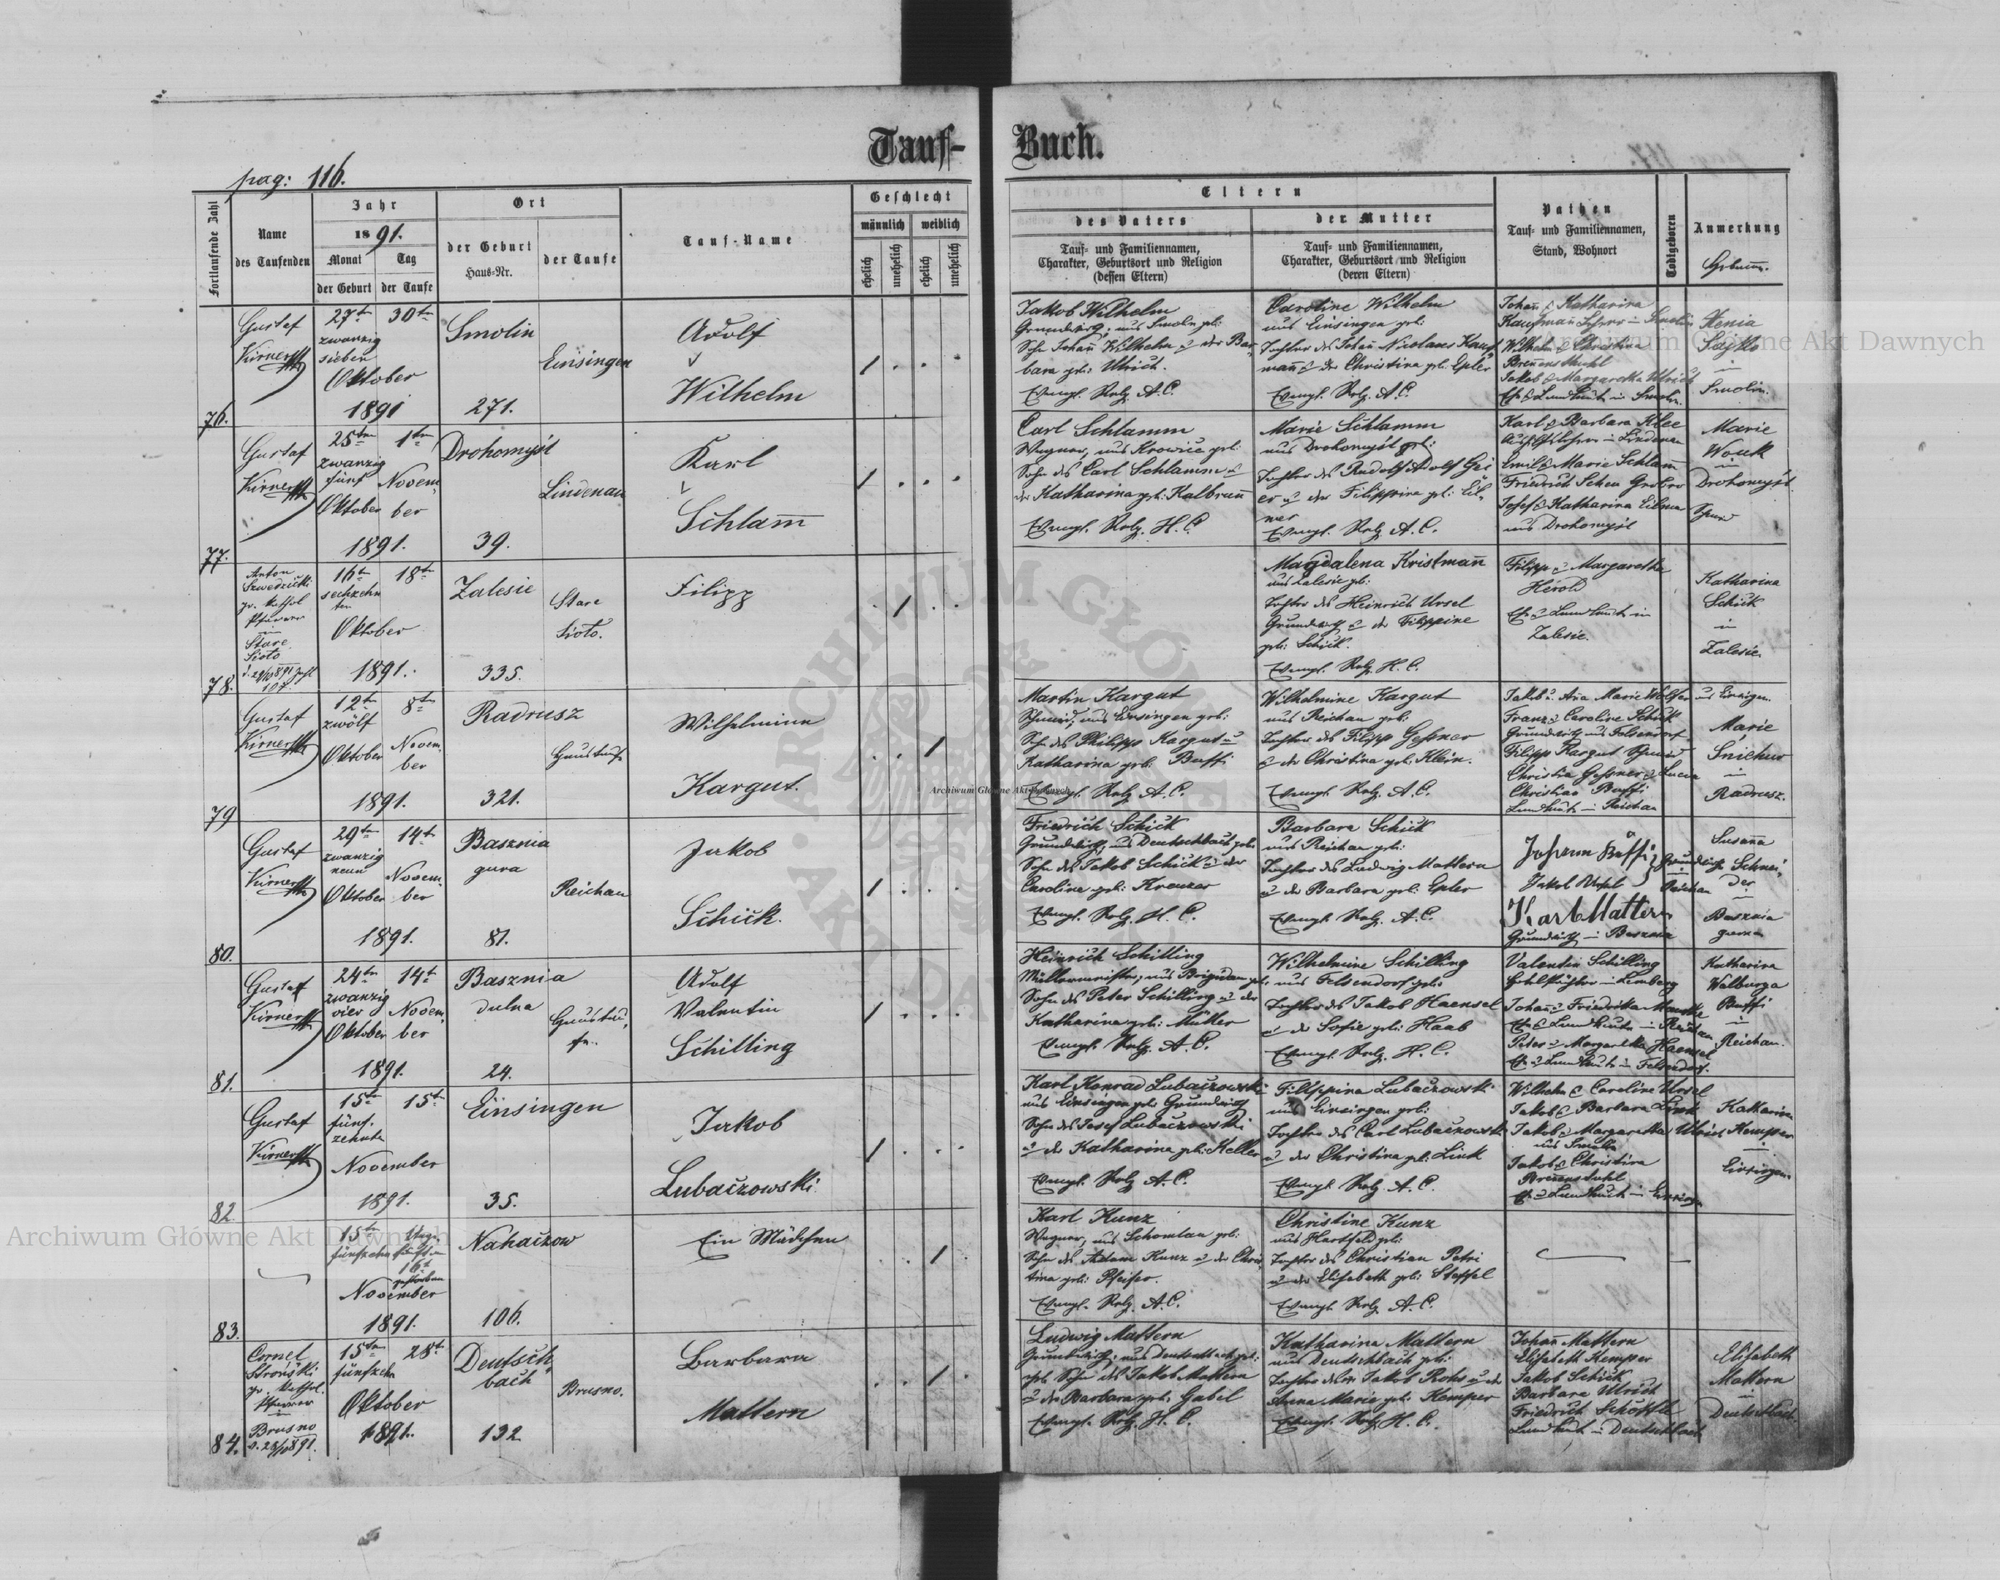 Tauf-Buch.
pag: 116.
Fortlaufende Zahl
Name
des Taufenden
Jahr
1891.
Monat
der Geburt
Tag
der Taufe
Ort
der Geburt
Haus-Nr.
der Taufe
Tauf-Name
Geschlecht
männlich
weiblich
ehelich
unehelich
ehelich
unehelich
Eltern
des Vaters
Tauf- und Familiennamen,
Charakter, Geburtsort und Religion
(dessen Eltern)
der Mutter
Tauf- und Familiennamen,
Charakter, Geburtsort und Religion
(deren Eltern)
Pathen
Tauf- und Familiennamen,
Stand, Wohnort
Todtgeboren
Anmerkung
76.
Gustaf
27t
zwanzig
sieben
Oktober
1891
30t
Smolin
271.
Einsingen
Adolf
Wilhelm
Jakob Wilhelm
Sohn Johañ Wilhelm u der Bar-
bara geb: Ulrich.
Evangl. Relg. A.C.
Caroline Wilhelm
aus Einsingen geb:
Tochter des Johañ Nicolaus Kauf-
mañ u der Christina geb: Epler
Evangl. Relg. A.C.
Johañ & Katharina
Wilhelm & Christina
Jakob & Margaretha Ulrich
Xenia
in
Smolin.
77.
Gustaf
25t
zwanzig
fünf
Oktober
1891.
1t
Novem-
ber
Drohomyśl
39.
Lindenau
Karl
Schlam̄
Carl Schlamm
Wagner, aus Krowice geb:
Sohn des Carl Schlamm u
der Katharina geb: Kalbrunn
Evangl. Relg. H.C.
Marie Schlamm
aus Drohomyśl geb:
Tochter des Rudolf Adolf Gei
er u der Filippina geb: Eil-
mer
Evangl. Relg. A.C.
Karl & Barbara Klee
Emil & Marie Schlam̄
Friedrich Schen
Josef & Katharina Eilmer
aus Drohomyśl
Marie
Wouk
in
Drohomyśl.
78.
Anton
gr. kathol
Pfarrer
in
Stare
Sioło
16t
sechzehn
ten
Oktober
1891.
18t
Zalesie
335.
Stare
Sioło.
Filipp
Magdalena Kristmañ
aus Zalesie geb:
Tochter des Heinrich Ursel
Grundwirth u der Filippine
geb: Schick.
Evangl. Relg. H.C.
Filipp & Margaretha
Herold
Zalesie
Katharina
Schick
in
Zalesie.
79
Gustaf
12t
zwölf
Oktober
1891.
8t
Novem-
ber
Radrusz
321.
Wilhelmine
Kargut.
Martin Kargut
Schmied, aus Einsingen geb:
Sohn des Philipp Kargut u
Katharina geb: Buffi
Evangl. Relg. A.C.
Wilhelmine Kargut
aus Reichau geb:
Tochter des Filipp Geßner
u der Christina geb: Klein.
Evangl. Relg. A.C.
Franz & Caroline Schick
Grundwirth aus Felsendorf
Filipp Kargut Schmied
Christian Buffi
Marie
in
Radrusz.
80.
Gustaf
29t
zwanzig
neun
Oktober
1891.
14t
Novem-
ber
Basznia
gura
81.
Reichau
Jakob
Schick.
Friedrich Schick
Sohn des Jakob Schick u der
Caroline geb: Kreuzer
Evangl. Relg. H.C.
Barbara Schick
aus Reichau geb:
Tochter des Ludwig Mattern
u der Barbara geb: Epler
Evangl. Relg. A.C.
Johann Büffi
Jakob Ursel
Karl Mattern
Grundwirth in Basznia
Susana
Schnei-
der
in
Basznia
gura
81.
Gustaf
24t
zwanzig
vier
Oktober
1891.
14t
Novem-
ber
Basznia
dulna
24.
Adolf
Valentin
Schilling
Heinrich Schilling
Müllermeister, aus Brigidau geb:
Sohn des Peter Schilling u der
Katharina geb: Müller
Evangl. Relg. A.C.
Wilhelmine Schilling
aus Felsendorf geb:
Tochter des Jakob Haensel
u der Sofie geb: Haab
Evangl. Relg. H.C.
Valentin Schilling
in Lemberg
Peter & Margaretha Haensel
Katharina
Walburga
Buffi
in
Reichau.
82.
Gustaf
15t
fünf-
zehnte
November
1891.
15t
Einsingen
35.
Jakob
Lubaczowski
Karl Konrad Lubaczowski
aus Einsingen geb: Grundwirth
Sohn des Josef Lubaczowski
u der Katharina geb: Keller
Evangl. Relg. A.C.
Filippina Lubaczowski
aus Einsingen geb:
Tochter des Carl Lubaczowski
u der Christina geb: Link
Evangl. Relg. A.C.
Wilhelm & Caroline Ursel
Jakob & Barbara Link
Jakob & Margaretha Ulrich
aus Smolin
Jakob & Christina
Katharina
Kemper
in
Einsingen.
83.
15t
fünfzehn
16t
gestorben
November
1891.
Nahaczow
106.
Ein Mädchen
Karl Kunz
Wagner, aus Schomlau geb:
Sohn des Adam Kunz u der Chris-
tina geb: Pfeifer.
Evangl. Relg. A.C.
Christine Kunz
aus Hartfeld geb:
Tochter des Christian Petri
u der Elisabeth geb: Steffel
Evangl. Relg. A.C.
84.
Cornel
Stroński
gr. kathol.
Pfarrer
in
Brusno
15t
fünfzehn
Oktober
1891.
28t
Deutsch-
bach
132
Brusno.
Barbara
Mattern
Ludwig Mattern
Grundwirth, aus Deutschbach geb:
Sohn des Jakob Mattern
u der Barbara geb: Gabel
Evangl. Relg. H.C.
Katharina Mattern
aus Deutschbach geb:
Tochter des Jakob Rohs u der
Anna Marie geb: Kemper
Evangl. Relg. H.C.
Johañ Mattern
Elisabeth Kemper
Jakob Schick
Barbara Ulrich
Friedrich Schöffle
Elisabeth
Mattern
in
Deutschbach.
ARCHIWUM GŁÓWNE AKT
Archiwum Główne Akt Dawnych
Archiwum Główne Akt Dawnych
Archiwum Główne Akt Dawnych